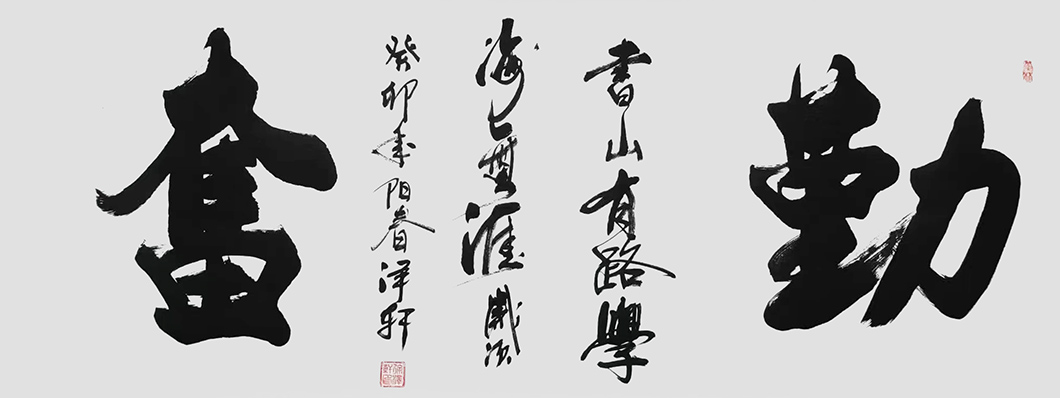 勤
書山有路學
海無涯
癸卯年阳春泽轩
奮